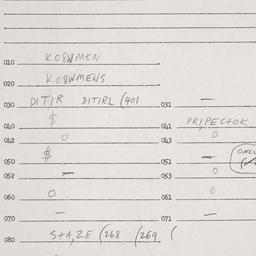 010 KO8WMEN
020 KO8WMENS
030 DITIR DITIRL (401 031 —
040 $ 041 PRIPECTOK
042 0 043 0
050 $ 051 —
052 — 053 0
060 0 061 0
070 — 071 —
080 STA,ZE (268 (269 (